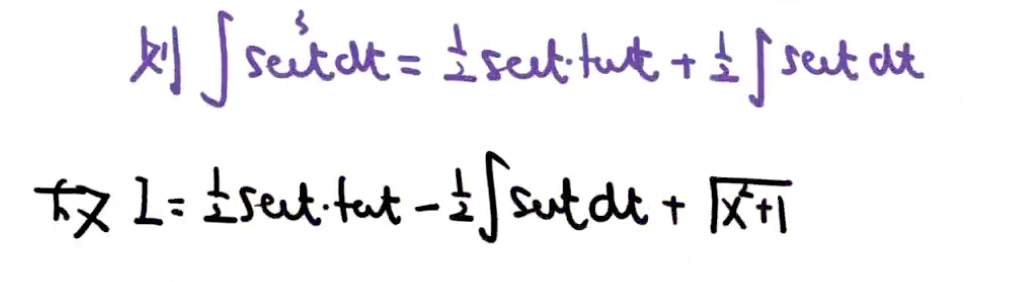 则 ∫sec³t dt = ½ sect·tant + ½ ∫ sect dt
故 I = ½ sect·tant − ½ ∫ sect dt + √(x²+1)